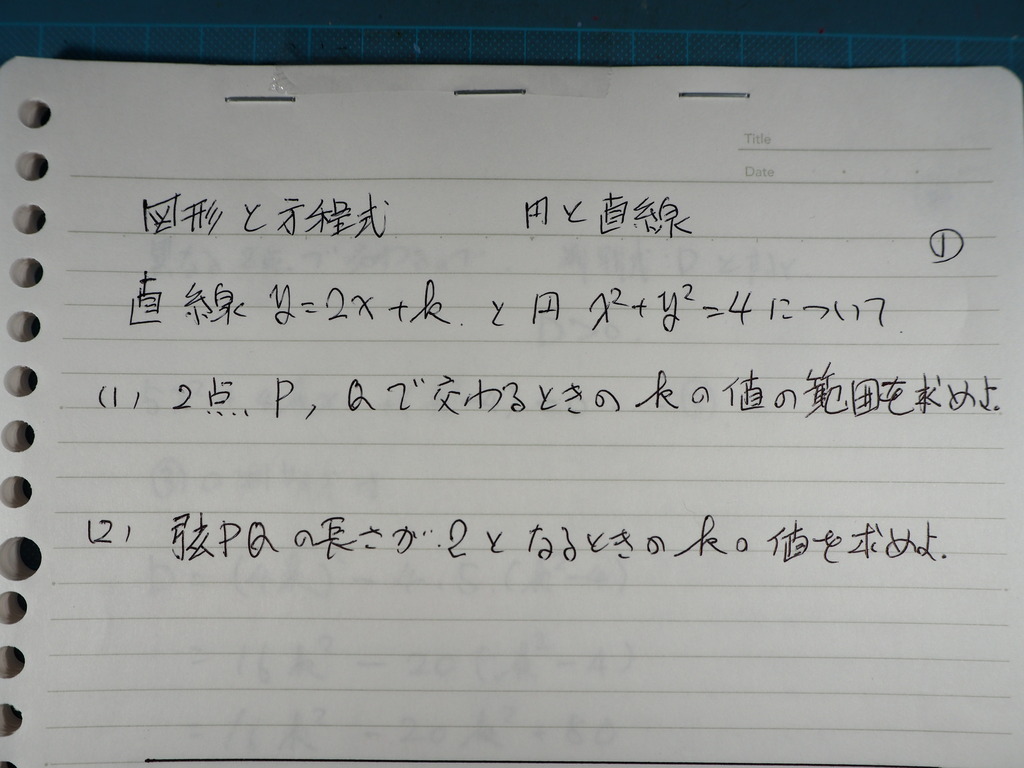 Title
Date
図形と方程式 円と直線
①
直線 y=2x+k と円 x²+y²=4について
(1) 2点 P, Qで交わるときの kの値の範囲を求めよ.
(2) 弦PQの長さが 2となるときの kの値を求めよ.